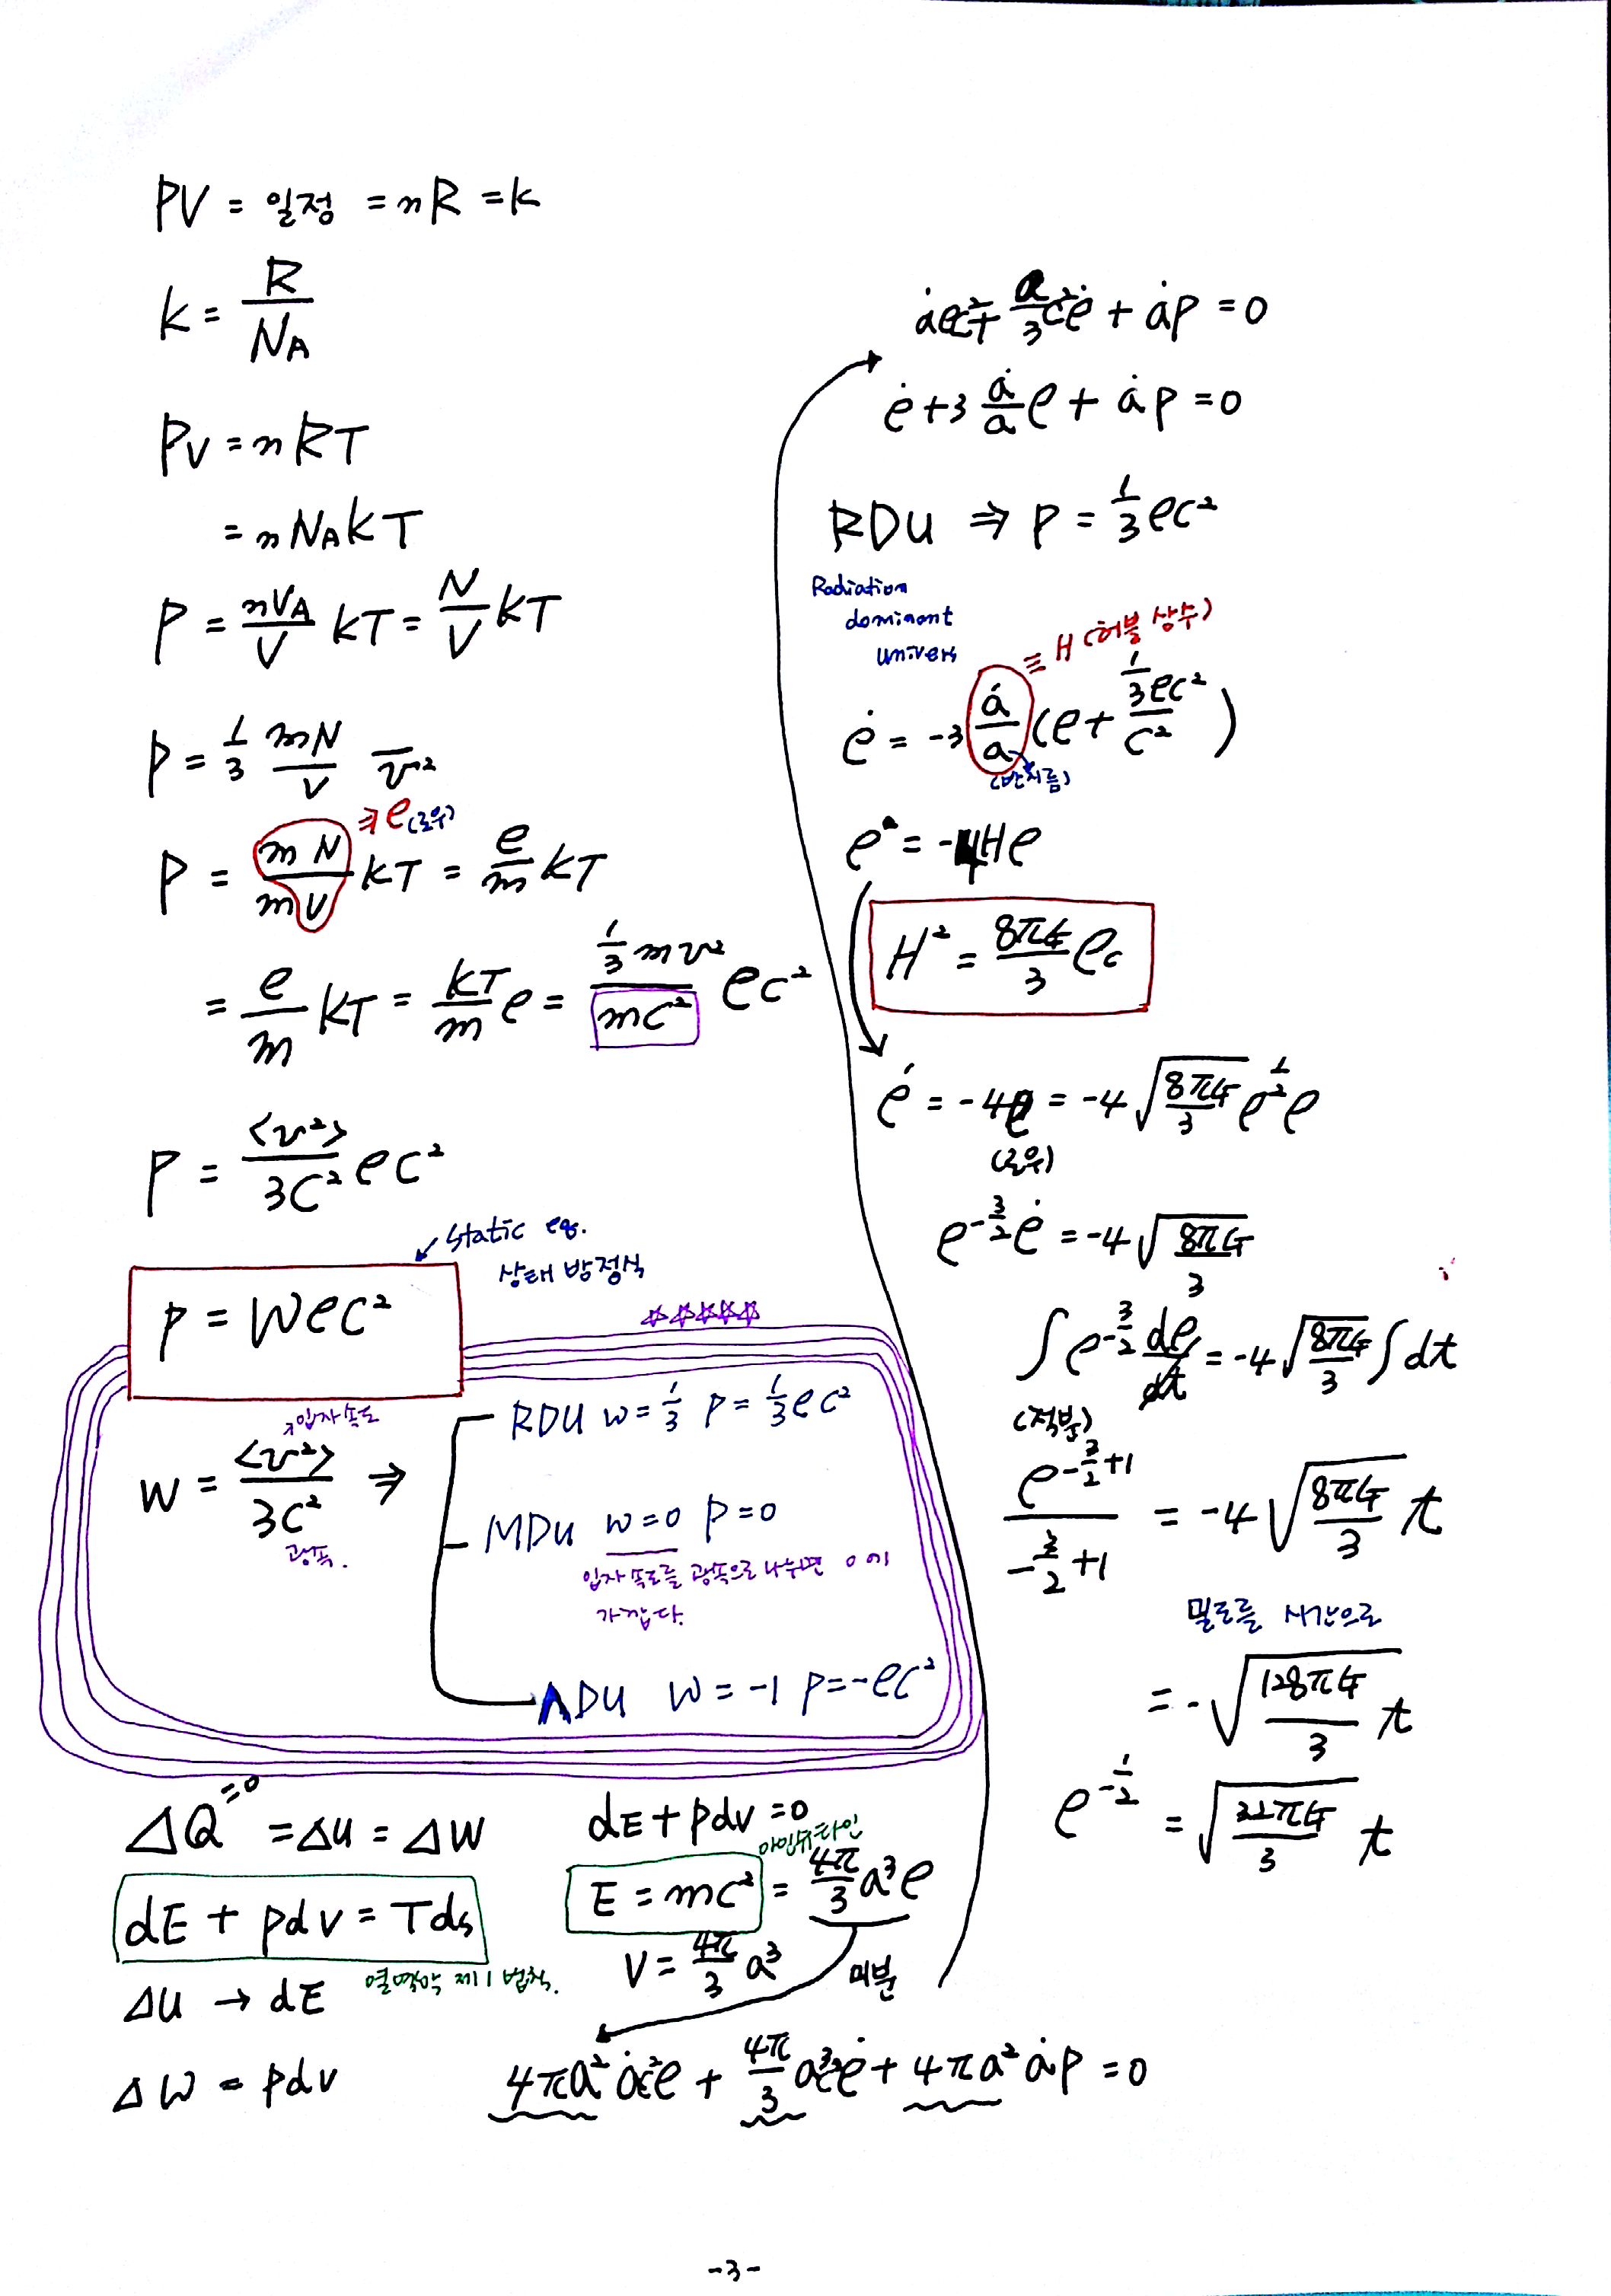 PV = 일정 = nR = k
k = R/N_A
PV = nRT
= nN_AkT
P = nV_A/V kT = N/V kT
P = 1/3 mN/V v̅²
P = mN/mV kT = ρ/m kT
≡ ρ(로우)
= ρ/m kT = kT/m ρ = (1/3 mv²)/(mc²) ρc²
P = <v²>/3C² ρc²
static eq.
상태 방정식
P = Wρc²
☆☆☆☆☆
입자속도
W = <v²>/3C² ⇒
광속.
RDU w = 1/3 P = 1/3 ρc²
MDU w=0 P=0
입자 속도를 광속으로 나누면 0에
가깝다.
ΛDU W = -1 P = -ρc²
ΔQ^{=0} = Δu = ΔW
dE + pdv = Tds
열역학 제1법칙.
Δu → dE
ΔW = pdv
dE + pdv = 0
아인슈타인
E = mc² = 4π/3 a³ρ
V = 4π/3 a³
미분
4πa²ȧc²ρ + 4π/3 a³c²ρ̇ + 4πa²ȧp = 0
ȧρc² + a/3 c²ρ̇ + ȧp = 0
ρ̇ + 3 ȧ/a ρ + ȧp = 0
RDU ⇒ P = 1/3 ρc²
Radiation
dominant
univers
≡ H (허블 상수)
ρ̇ = -3 ȧ/a (ρ + (1/3 ρc²)/c²)
(반지름)
ρ̇ = -4Hρ
H² = 8πG/3 ρc
ρ̇ = -4ρ = -4√(8πG/3) ρ^{1/2} ρ
(로우)
ρ^{-3/2} ρ̇ = -4√(8πG/3)
∫ρ^{-3/2} dρ/dt = -4√(8πG/3) ∫dt
(적분)
ρ^{-3/2+1}/(-3/2+1) = -4√(8πG/3) t
밀도를 시간으로
= -√(128πG/3) t
ρ^{-1/2} = √(32πG/3) t
-3-